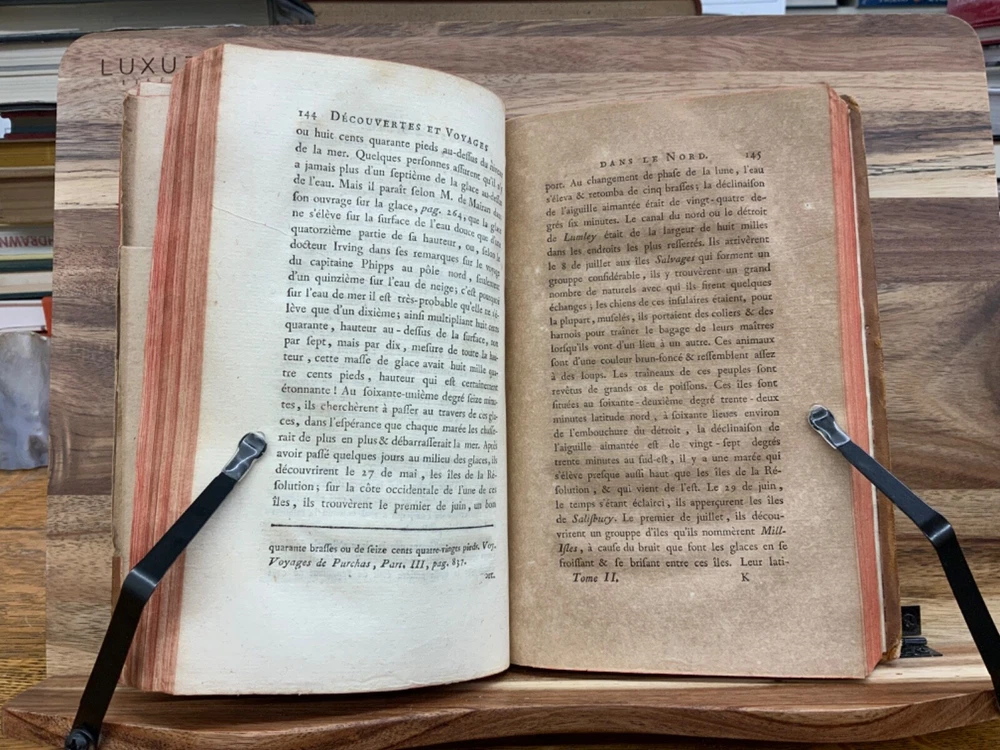 LUXU
144 DÉCOUVERTES ET VOYAGES
ou huit cents quarante pieds au-dessus du niveau
de la mer. Quelques personnes assurent qu'il n'y
a jamais plus d'un septième de la glace au-dessus
de l'eau. Mais il paraît selon M. de Mairan dans
son ouvrage sur la glace, pag. 264, que la glace
ne s'élève sur la surface de l'eau douce que d'une
quatorzième partie de sa hauteur, ou, selon le
docteur Irving dans ses remarques sur le voyage
du capitaine Phipps au pôle nord, seulement
d'un quinzième sur l'eau de neige; c'est pourquoi
sur l'eau de mer il est très-probable qu'elle ne s'é-
lève que d'un dixième; ainsi multipliant huit cents
quarante, hauteur au-dessus de la surface, non
par sept, mais par dix, mesure de toute la hau-
teur, cette masse de glace avait huit mille qua-
tre cents pieds, hauteur qui est certainement
étonnante! Au soixante-unième degré seize minu-
tes, ils cherchèrent à passer au travers de ces gla-
ces, dans l'espérance que chaque marée les chasse-
rait de plus en plus & débarrasserait la mer. Après
avoir passé quelques jours au milieu des glaces, ils
découvrirent le 27 de mai, les îles de la Ré-
solution; sur la côte occidentale de l'une de ces
îles, ils trouvèrent le premier de juin, un bon
quarante brasses ou de seize cents quatre-vingts pieds. Voy.
Voyages de Purchas, Part. III, pag. 837.
DANS LE NORD. 145
port. Au changement de phase de la lune, l'eau
s'éleva & retomba de cinq brasses; la déclinaison
de l'aiguille aimantée était de vingt-quatre de-
grés six minutes. Le canal du nord ou le détroit
de Lumley était de la largeur de huit milles
dans les endroits les plus resserrés. Ils arrivèrent
le 8 de juillet aux îles Salvages qui forment un
grouppe considérable, ils y trouvèrent un grand
nombre de naturels avec qui ils firent quelques
échanges; les chiens de ces insulaires étaient, pour
la plupart, muselés, ils portaient des coliers & des
harnois pour traîner le bagage de leurs maîtres
lorsqu'ils vont d'un lieu à un autre. Ces animaux
sont d'une couleur brun-foncé & ressemblent assez
à des loups. Les traîneaux de ces peuples sont
revêtus de grands os de poissons. Ces îles sont
situées au soixante-deuxième degré trente-deux
minutes latitude nord, à soixante lieues environ
de l'embouchure du détroit, la déclinaison de
l'aiguille aimantée est de vingt-sept degrés
trente minutes au sud-est, il y a une marée qui
s'élève presque aussi haut que les îles de la Ré-
solution, & qui vient de l'est. Le 29 de juin,
le temps s'étant éclairci, ils apperçurent les îles
de Salisbury. Le premier de juillet, ils décou-
vrirent un grouppe d'îles qu'ils nommèrent Mill-
Isles, à cause du bruit que font les glaces en se
froissant & se brisant entre ces îles. Leur lati-
Tome II. K